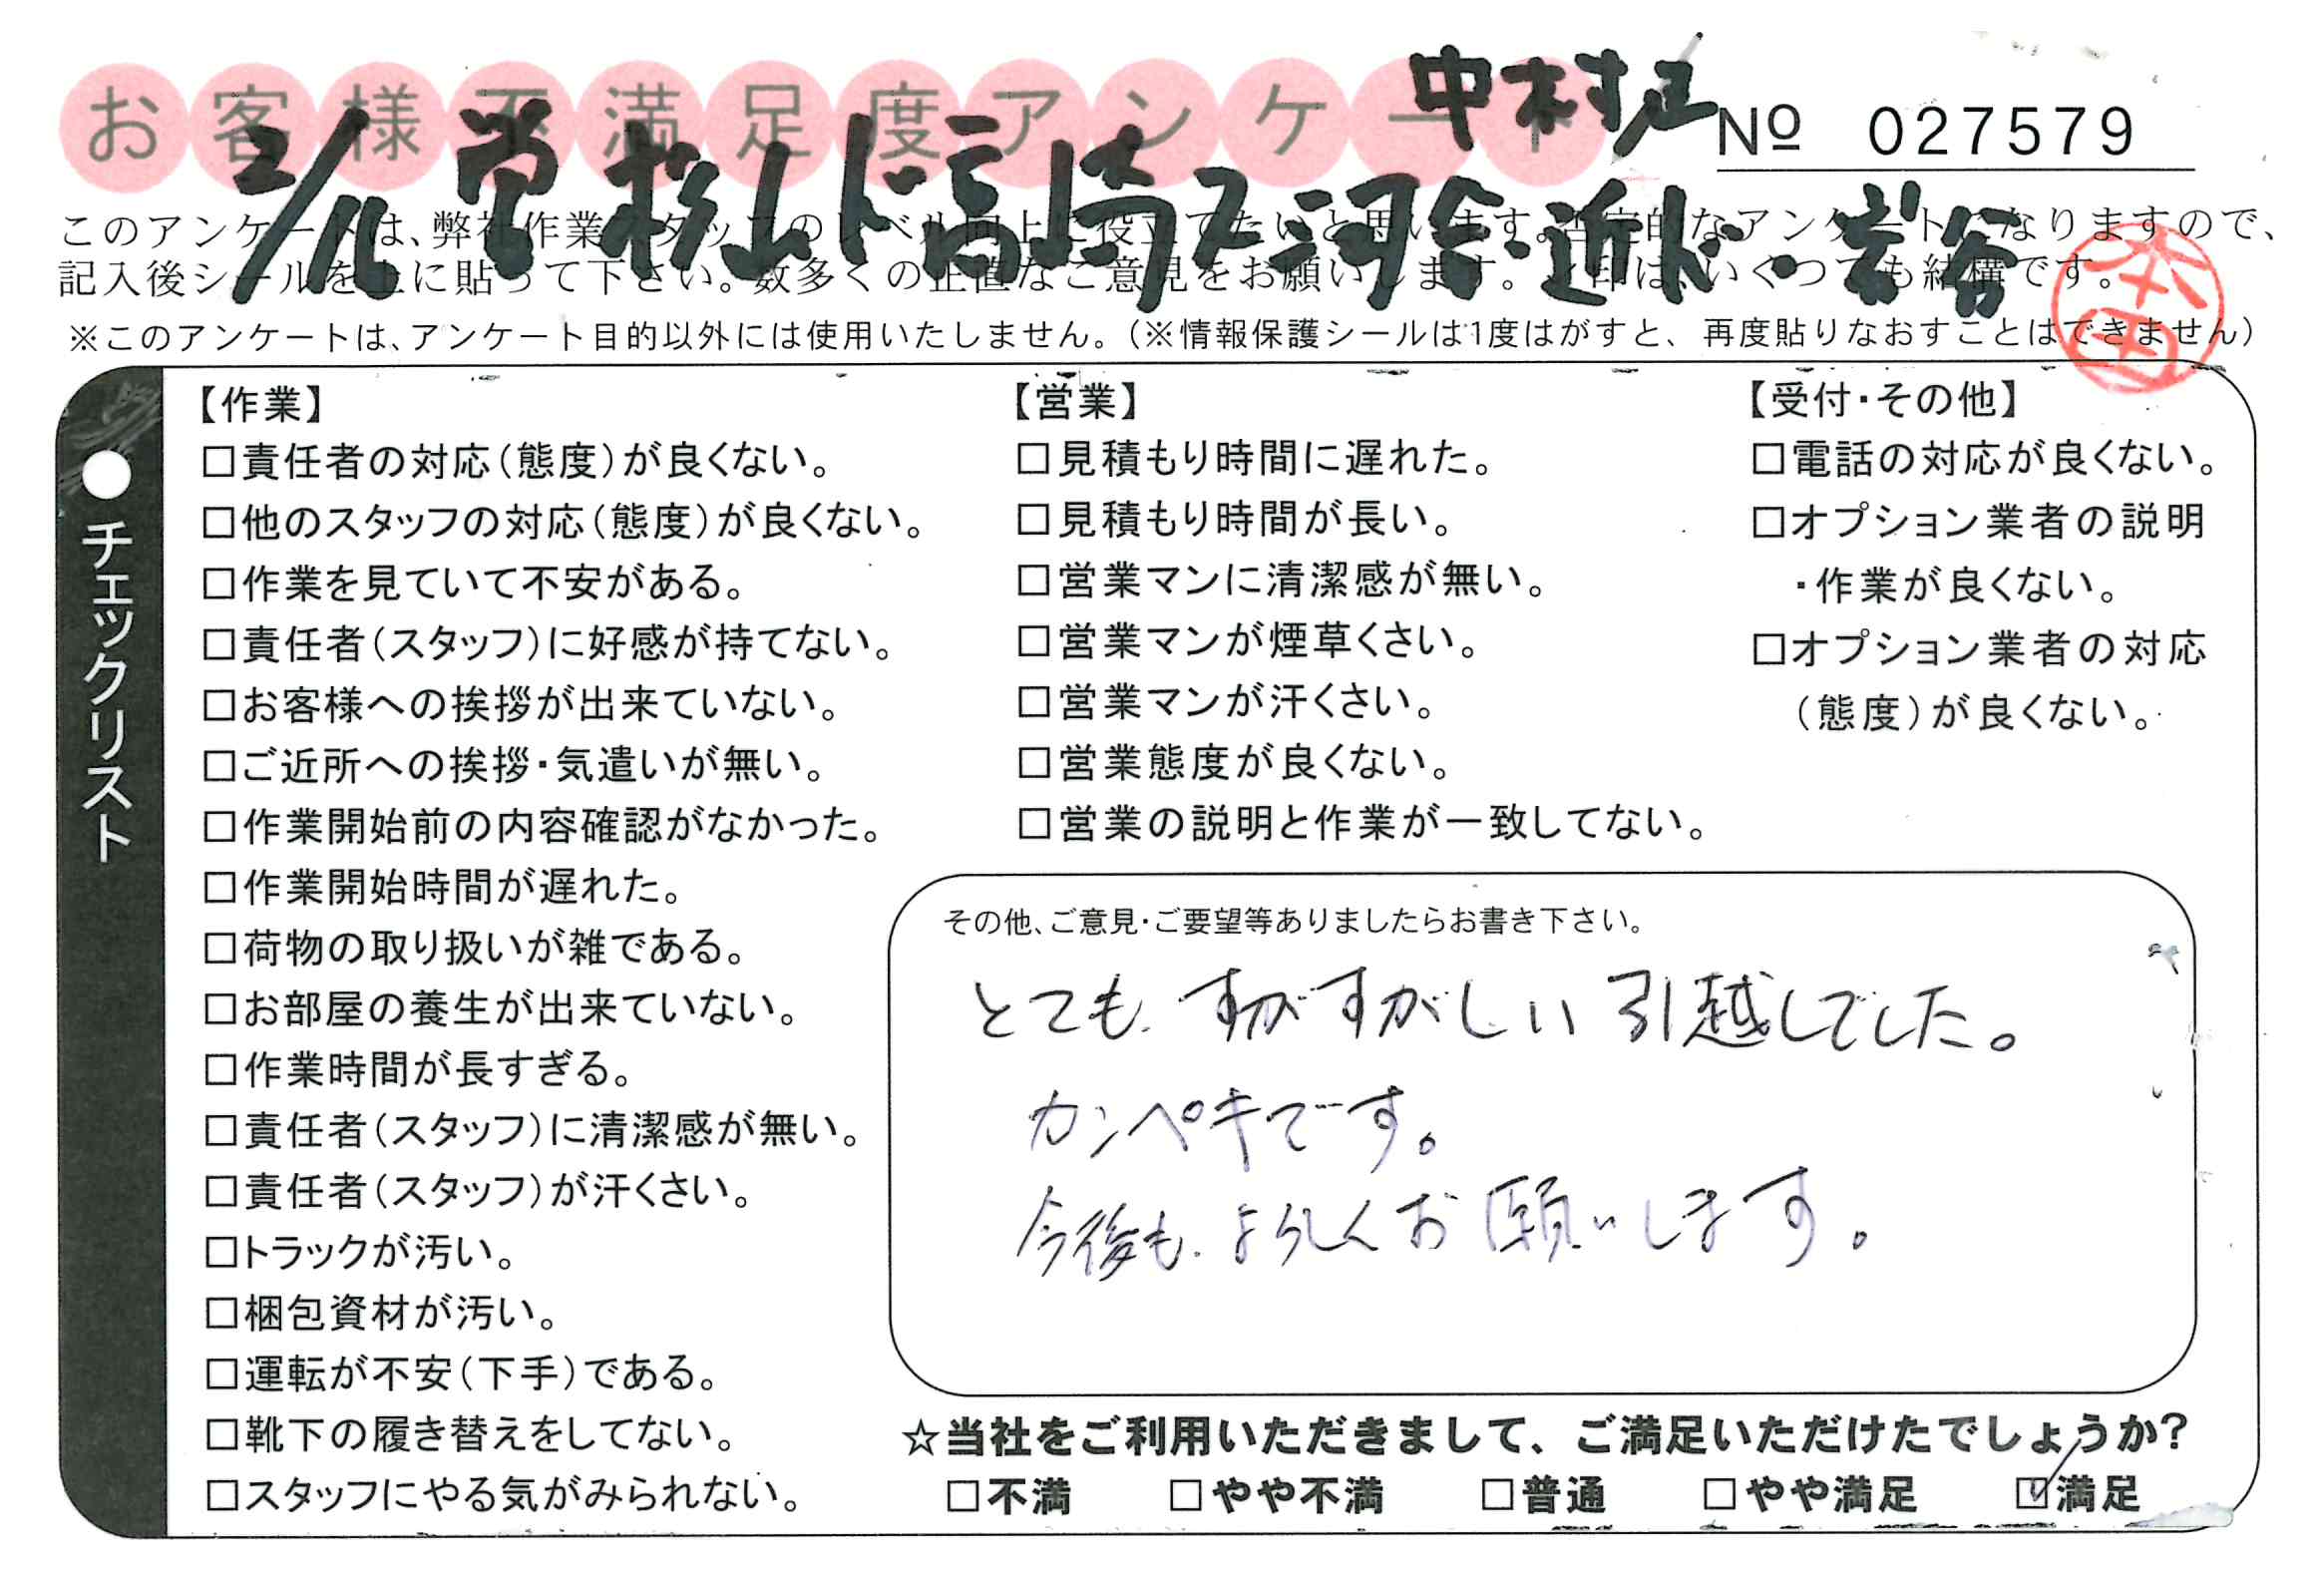 お客様不満足度アンケート
中村
No 027579
2/16 営 杉山ド 高崎 ス 河合・近ド・岩谷
このアンケートは、弊社作業スタッフのレベル向上に役立てたいと思います。否定的なアンケートになりますので、
記入後シールを上に貼って下さい。数多くの正直なご意見をお願いします。 印は、いくつでも結構です。
本田
※このアンケートは、アンケート目的以外には使用いたしません。(※情報保護シールは1度はがすと、再度貼りなおすことはできません)
●チェックリスト
【作業】
□責任者の対応(態度)が良くない。
□他のスタッフの対応(態度)が良くない。
□作業を見ていて不安がある。
□責任者(スタッフ)に好感が持てない。
□お客様への挨拶が出来ていない。
□ご近所への挨拶・気遣いが無い。
□作業開始前の内容確認がなかった。
□作業開始時間が遅れた。
□荷物の取り扱いが雑である。
□お部屋の養生が出来ていない。
□作業時間が長すぎる。
□責任者(スタッフ)に清潔感が無い。
□責任者(スタッフ)が汗くさい。
□トラックが汚い。
□梱包資材が汚い。
□運転が不安(下手)である。
□靴下の履き替えをしてない。
□スタッフにやる気がみられない。
【営業】
□見積もり時間に遅れた。
□見積もり時間が長い。
□営業マンに清潔感が無い。
□営業マンが煙草くさい。
□営業マンが汗くさい。
□営業態度が良くない。
□営業の説明と作業が一致してない。
【受付・その他】
□電話の対応が良くない。
□オプション業者の説明
・作業が良くない。
□オプション業者の対応
(態度)が良くない。
その他、ご意見・ご要望等ありましたらお書き下さい。
とても、すがすがしい引越しでした。
カンペキです。
今後も、よろしくお願いします。
☆当社をご利用いただきまして、ご満足いただけたでしょうか?
□不満 □やや不満 □普通 □やや満足 ☑満足